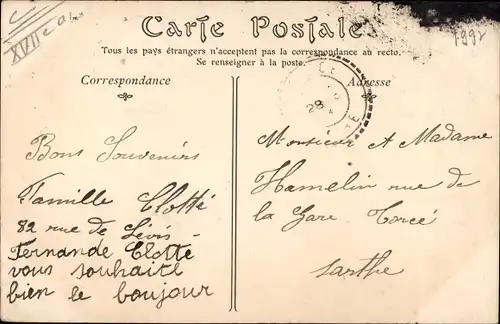 XVIIe
1992
Carte Postale
Tous les pays étrangers n'acceptent pas la correspondance au recto.
Se renseigner à la poste.
Correspondance
Adresse
28
Bons Souvenirs
Famille Clotté
82 rue de Lévis -
Fernande Clotte
vous souhaite
bien le boujour
Monsieur et Madame
Hamelin rue de
la Gare Torcé
Sarthe